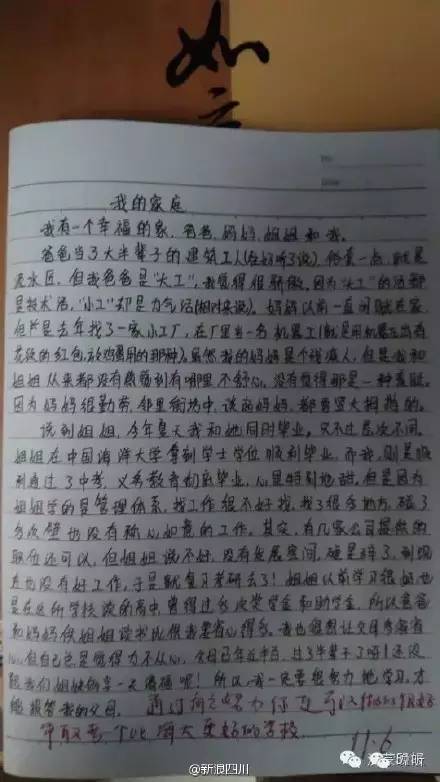 如
我的家庭
我有一个幸福的家，爸爸，妈妈，姐姐和我。
爸爸当了大半辈子的建筑工人(在好听了说)，俗套一点，就是
泥水匠，但我爸爸是"大工"，我觉得很骄傲。因为"大工"的活都
是技术活，"小工"却是力气活(相对来说)。妈妈以前一直闲赋在家
但是去年找了一家小工厂，在厂里当一名机器工(就是用机器
的红包，我的妈妈是个残疾人，但是我和
姐姐从来都没有感觉到有哪里不舒心，没有觉得那是一种羞耻。
因为妈妈很勤劳，邻里街坊中，谈论妈妈，都要竖大拇指的。
说到姐姐，今年夏天我和她同时毕业。只不过层次不同。
姐姐在中国海洋大学拿到学士学位顺利毕业，而我，则是顺
利通过了中考，义务教育初高毕业，心里特别地甜。但是因为
姐姐学的是管理体系，找工作很不好找，找了很多地方，碰了
多次壁也没有称心如意的工作。其实，有几家公司提供的
职位还可以，但姐姐说不好，没有发展空间，硬是辞了，到现
在也没有好工作，于是就复习考研去了！姐姐以前学习很好也
是在这所学校读的高中，曾得过多次奖学金和助学金，所以爸爸
和妈妈供姐姐读书比供我要省心得多。我也很想让父母多省省
心，但自己总是觉得力不从心，今母已年近半百，过了半辈子了啊！还没
跟我们姐妹俩享一天清福呢！所以，我一定要想努力地学习，才
能报答我的父母。通过何之努力你是可以
海大更好的学校
11.6
@新浪四川